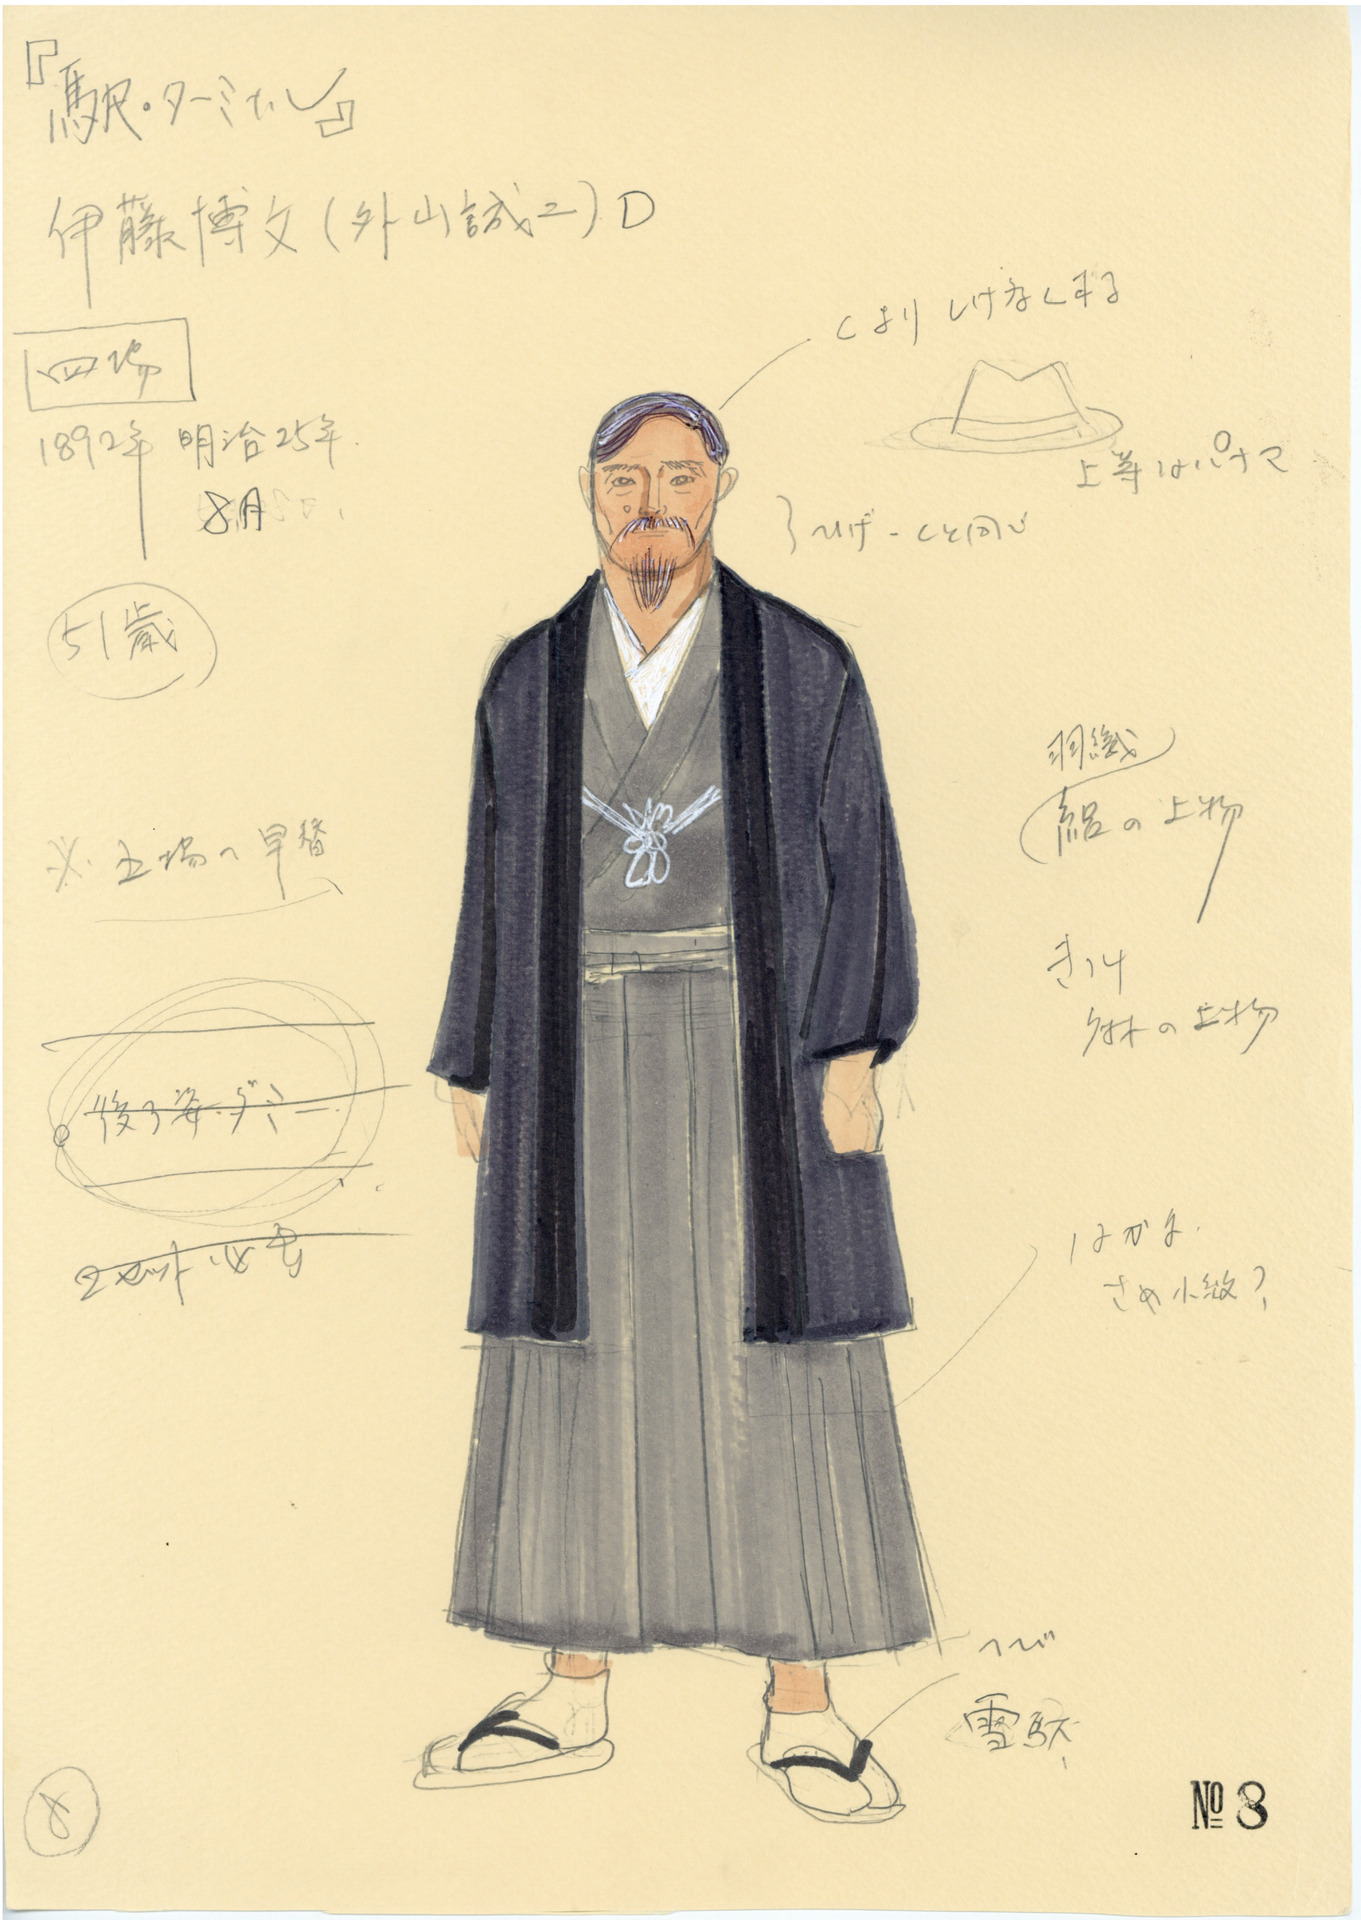 『駅・ターミナル』
伊藤博文(外山誠二)D
四場
1892年 明治25年
8月
51歳
※五場へ早替
後ろ姿・ダミー
2セット必要
8
Cより しげなくする
上等なパナマ
ひげ-Cと同じ
羽織
絽の上物
きもの
麻の上物
はかま
さめ小紋?
へび
雪駄
№8